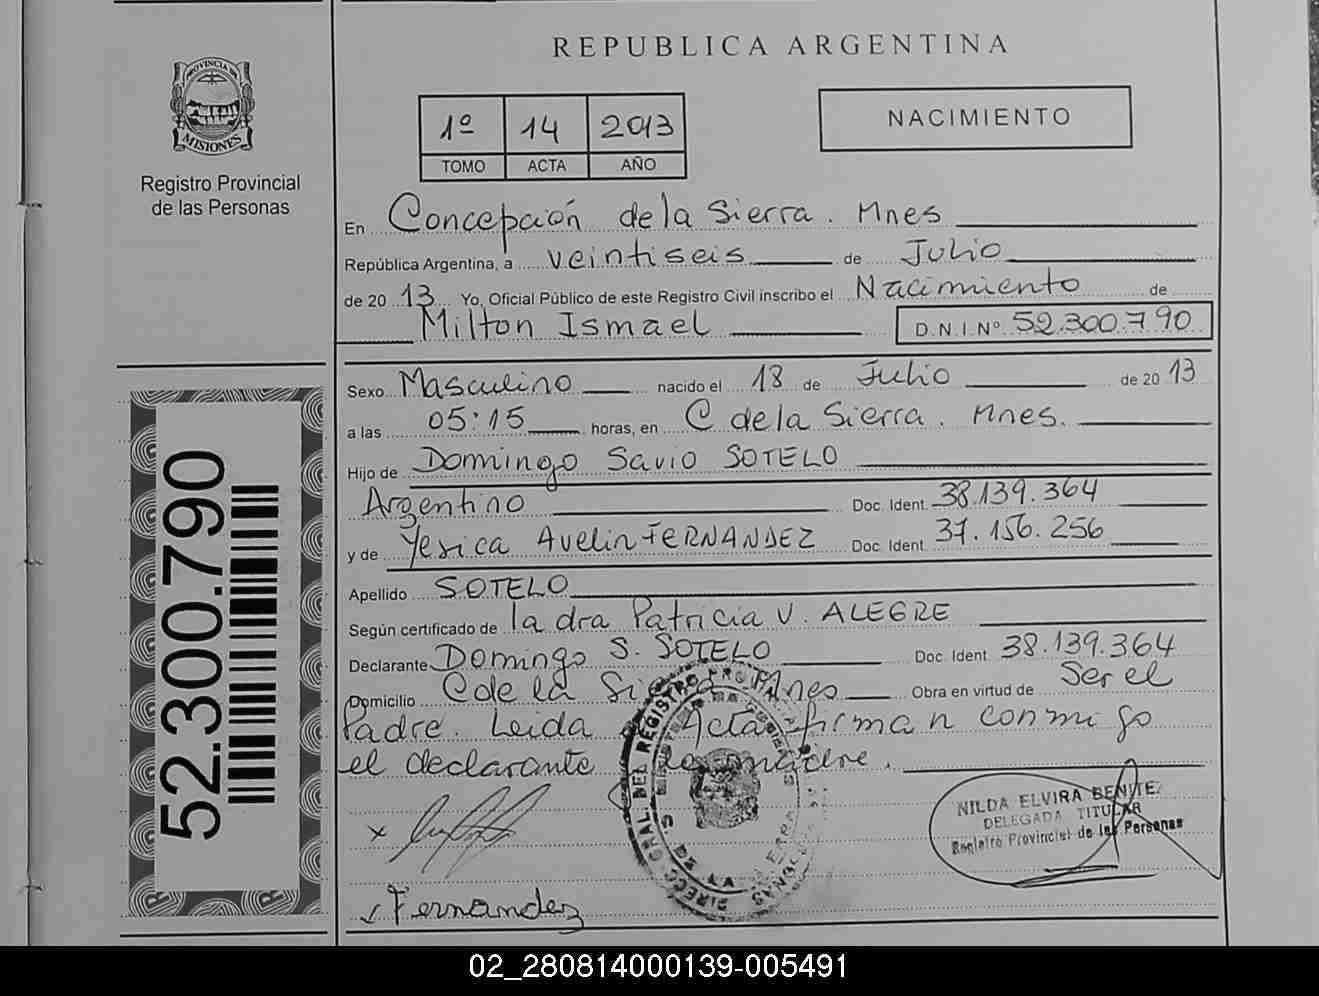 REPUBLICA ARGENTINA
PROVINCIA DE
MISIONES
Registro Provincial
de las Personas
1º 14 2013
TOMO ACTA AÑO
NACIMIENTO
En Concepción de la Sierra. Mnes
República Argentina, a veintiseis de Julio
de 2013 Yo, Oficial Público de este Registro Civil inscribo el Nacimiento de
Milton Ismael D.N.I.Nº 52.300.790
Sexo Masculino nacido el 18 de Julio de 2013
a las 05:15 horas, en C de la Sierra. Mnes.
Hijo de Domingo Savio SOTELO
Argentino Doc. Ident. 38.139.364
y de Yesica Avelin FERNANDEZ Doc. Ident. 37.156.256
Apellido SOTELO
Según certificado de la dra Patricia V. ALEGRE
Declarante Domingo S. SOTELO Doc. Ident. 38.139.364
Domicilio C de la Mnes Obra en virtud de Ser el
Padre. Leida Acta firman conmigo
el declarante la madre.
52.300.790
DIRECC. GRAL. DEL REGISTRO
NILDA ELVIRA BENITEZ
DELEGADA TITULAR
Registro Provincial de las Personas
x
Fernandez
02_280814000139-005491